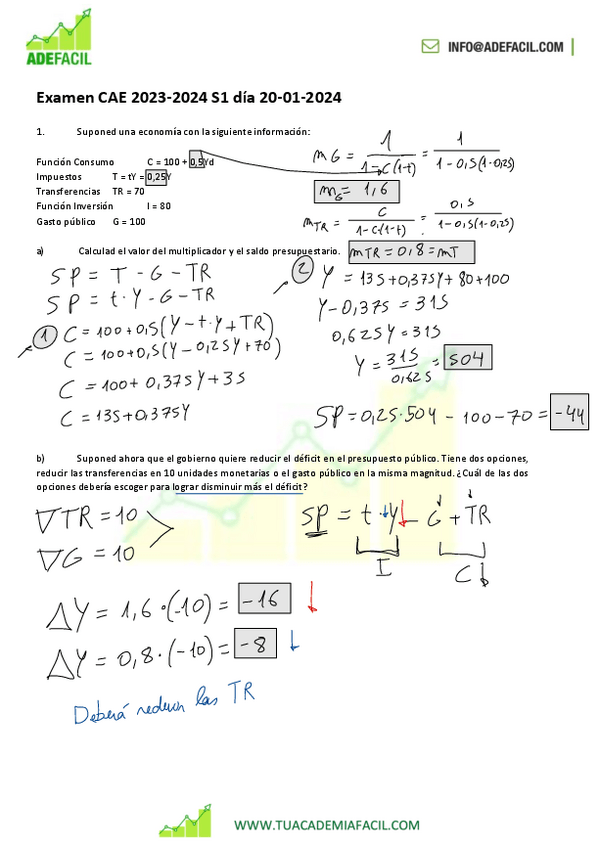 ADEFACIL
INFO@ADEFACIL.COM
Examen CAE 2023-2024 S1 día 20-01-2024
1. Suponed una economía con la siguiente información:
Función Consumo C = 100 + 0,5Yd
Impuestos T = tY = 0,25Y
Transferencias TR = 70
Función Inversión I = 80
Gasto público G = 100
mG = 1 / 1-C(1-t) = 1 / 1-0,5(1-0,25)
mG = 1,6
mTR = C / 1-C(1-t) = 0,5 / 1-0,5(1-0,25)
a) Calculad el valor del multiplicador y el saldo presupuestario.
mTR = 0,8 = mT
SP = T - G - TR
SP = t·Y - G - TR
1 C = 100+0,5(Y-t·Y+TR)
C = 100+0,5(Y-0,25Y+70)
C = 100+0,375Y+35
C = 135+0,375Y
2 Y = 135+0,375Y+80+100
Y-0,375 = 315
0,625Y = 315
Y = 315 / 0,625 = 504
SP = 0,25·504 - 100-70 = -44
b) Suponed ahora que el gobierno quiere reducir el déficit en el presupuesto público. Tiene dos opciones,
reducir las transferencias en 10 unidades monetarias o el gasto público en la misma magnitud. ¿Cuál de las dos
opciones debería escoger para lograr disminuir más el déficit?
▽TR = 10
▽G = 10
SP = t·↓Y↓ - G + TR
I
C↓
ΔY = 1,6·(-10) = -16 ↓
ΔY = 0,8·(-10) = -8 ↓
Deberá reducir las TR
WWW.TUACADEMIAFACIL.COM